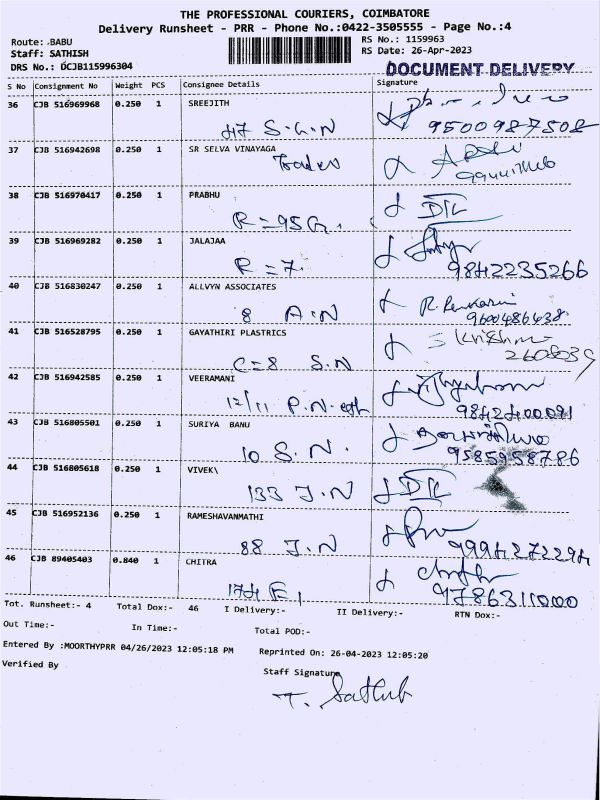 THE PROFESSIONAL COURIERS, COIMBATORE
Delivery Runsheet - PRR - Phone No.:0422-3505555 - Page No.:4
Route: .BABU
RS No.: 1159963
Staff: SATHISH
RS Date: 26-Apr-2023
DRS No.: DCJB115996304
DOCUMENT DELIVERY
S No Consignment No Weight PCS Consignee Details Signature
36 CJB 516969968 0.250 1 SREEJITH
47 S.G.N
9500987508
37 CJB 516942698 0.250 1 SR SELVA VINAYAGA
Traders
38 CJB 516970417 0.250 1 PRABHU
R=95G. DTL
39 CJB 516969282 0.250 1 JALAJAA
R=7. 9842235266
40 CJB 516830247 0.250 1 ALLVYN ASSOCIATES
8 A.N 9600486438
41 CJB 516528795 0.250 1 GAYATHIRI PLASTRICS
C=8 S.N 2608039
42 CJB 516942585 0.250 1 VEERAMANI
12/11 P.N 9842400091
43 CJB 516805501 0.250 1 SURIYA BANU
10 S.N. 9585958786
44 CJB 516805618 0.250 1 VIVEK\
133 J.N DTL
45 CJB 516952136 0.250 1 RAMESHAVANMATHI
88 J.N 9994272294
46 CJB 89405403 0.840 1 CHITRA
174 E, 97863110000
Tot. Runsheet:- 4 Total Dox:- 46 I Delivery:- II Delivery:- RTN Dox:-
Out Time:- In Time:- Total POD:-
Entered By :MOORTHYPRR 04/26/2023 12:05:18 PM Reprinted On: 26-04-2023 12:05:20
Verified By Staff Signature
T. Sathish